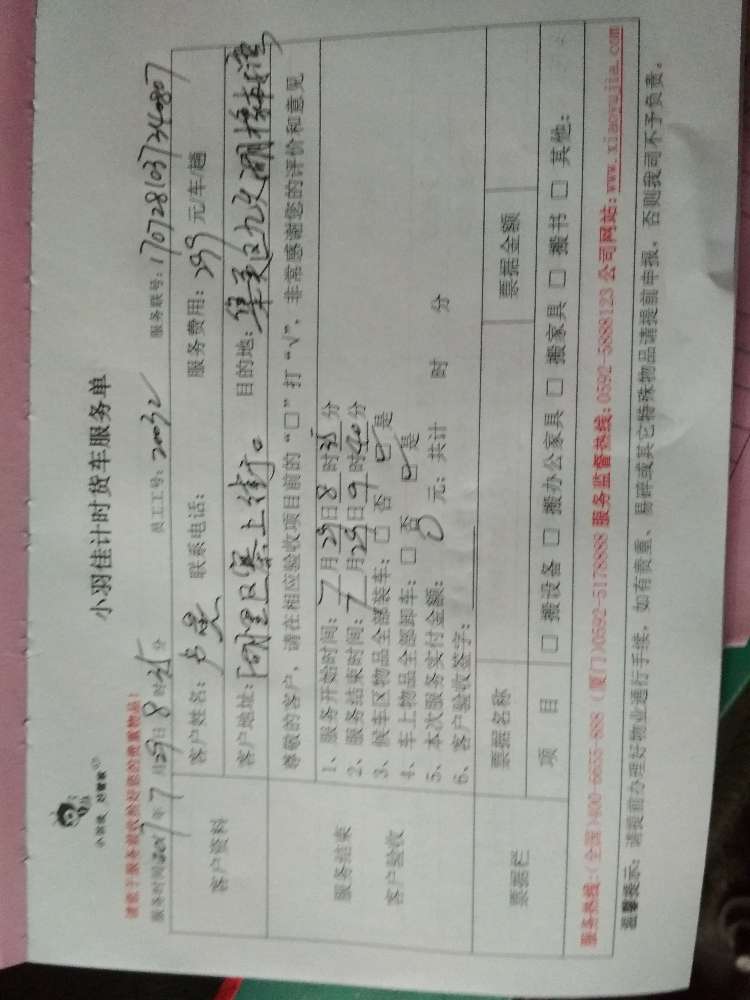 小羽佳计时货车服务单
小羽佳 好管家
请您于服务前收拾好您的贵重物品!
服务时间:2017年7月29日8时25分 员工工号:20032 服务联号:1707281037340807
客户资料
客户姓名: 联系电话: 服务费用:299元/车/趟
客户地址: 目的地:
尊敬的客户,请在相应验收项目前的“□”打“√”,非常感谢您的评价和意见
服务结束
客户验收
1、服务开始时间:7月29日8时25分
2、服务结束时间:7月29日9时40分
3、候车区物品全部装车:□ 否 ☑ 是
4、车上物品全部卸车:□ 否 ☑ 是
5、本次服务实付金额:0元;共计 时 分
6、客户验收签字:
票据栏 票据名称 票据金额
项 目 □ 搬设备 □ 搬办公家具 □ 搬家具 □ 搬书 □ 其他:
服务热线:(全国)400-6655-888 (厦门)0592-5178888 服务监督热线:0592-5888123 公司网站:www.xiaoyujia.com
温馨提示:请提前办理好物业通行手续,如有贵重、易碎或其它特殊物品请提前申报,否则我司不予负责。